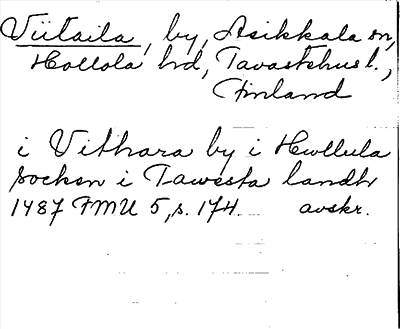 Viitaila, by, Asikkala sn,
Hollola hd, Tavastehus l.,
Finland
i Vithara by i Hwllula
socken i Tawesta landh
1487 FMU 5, s. 174. avskr.